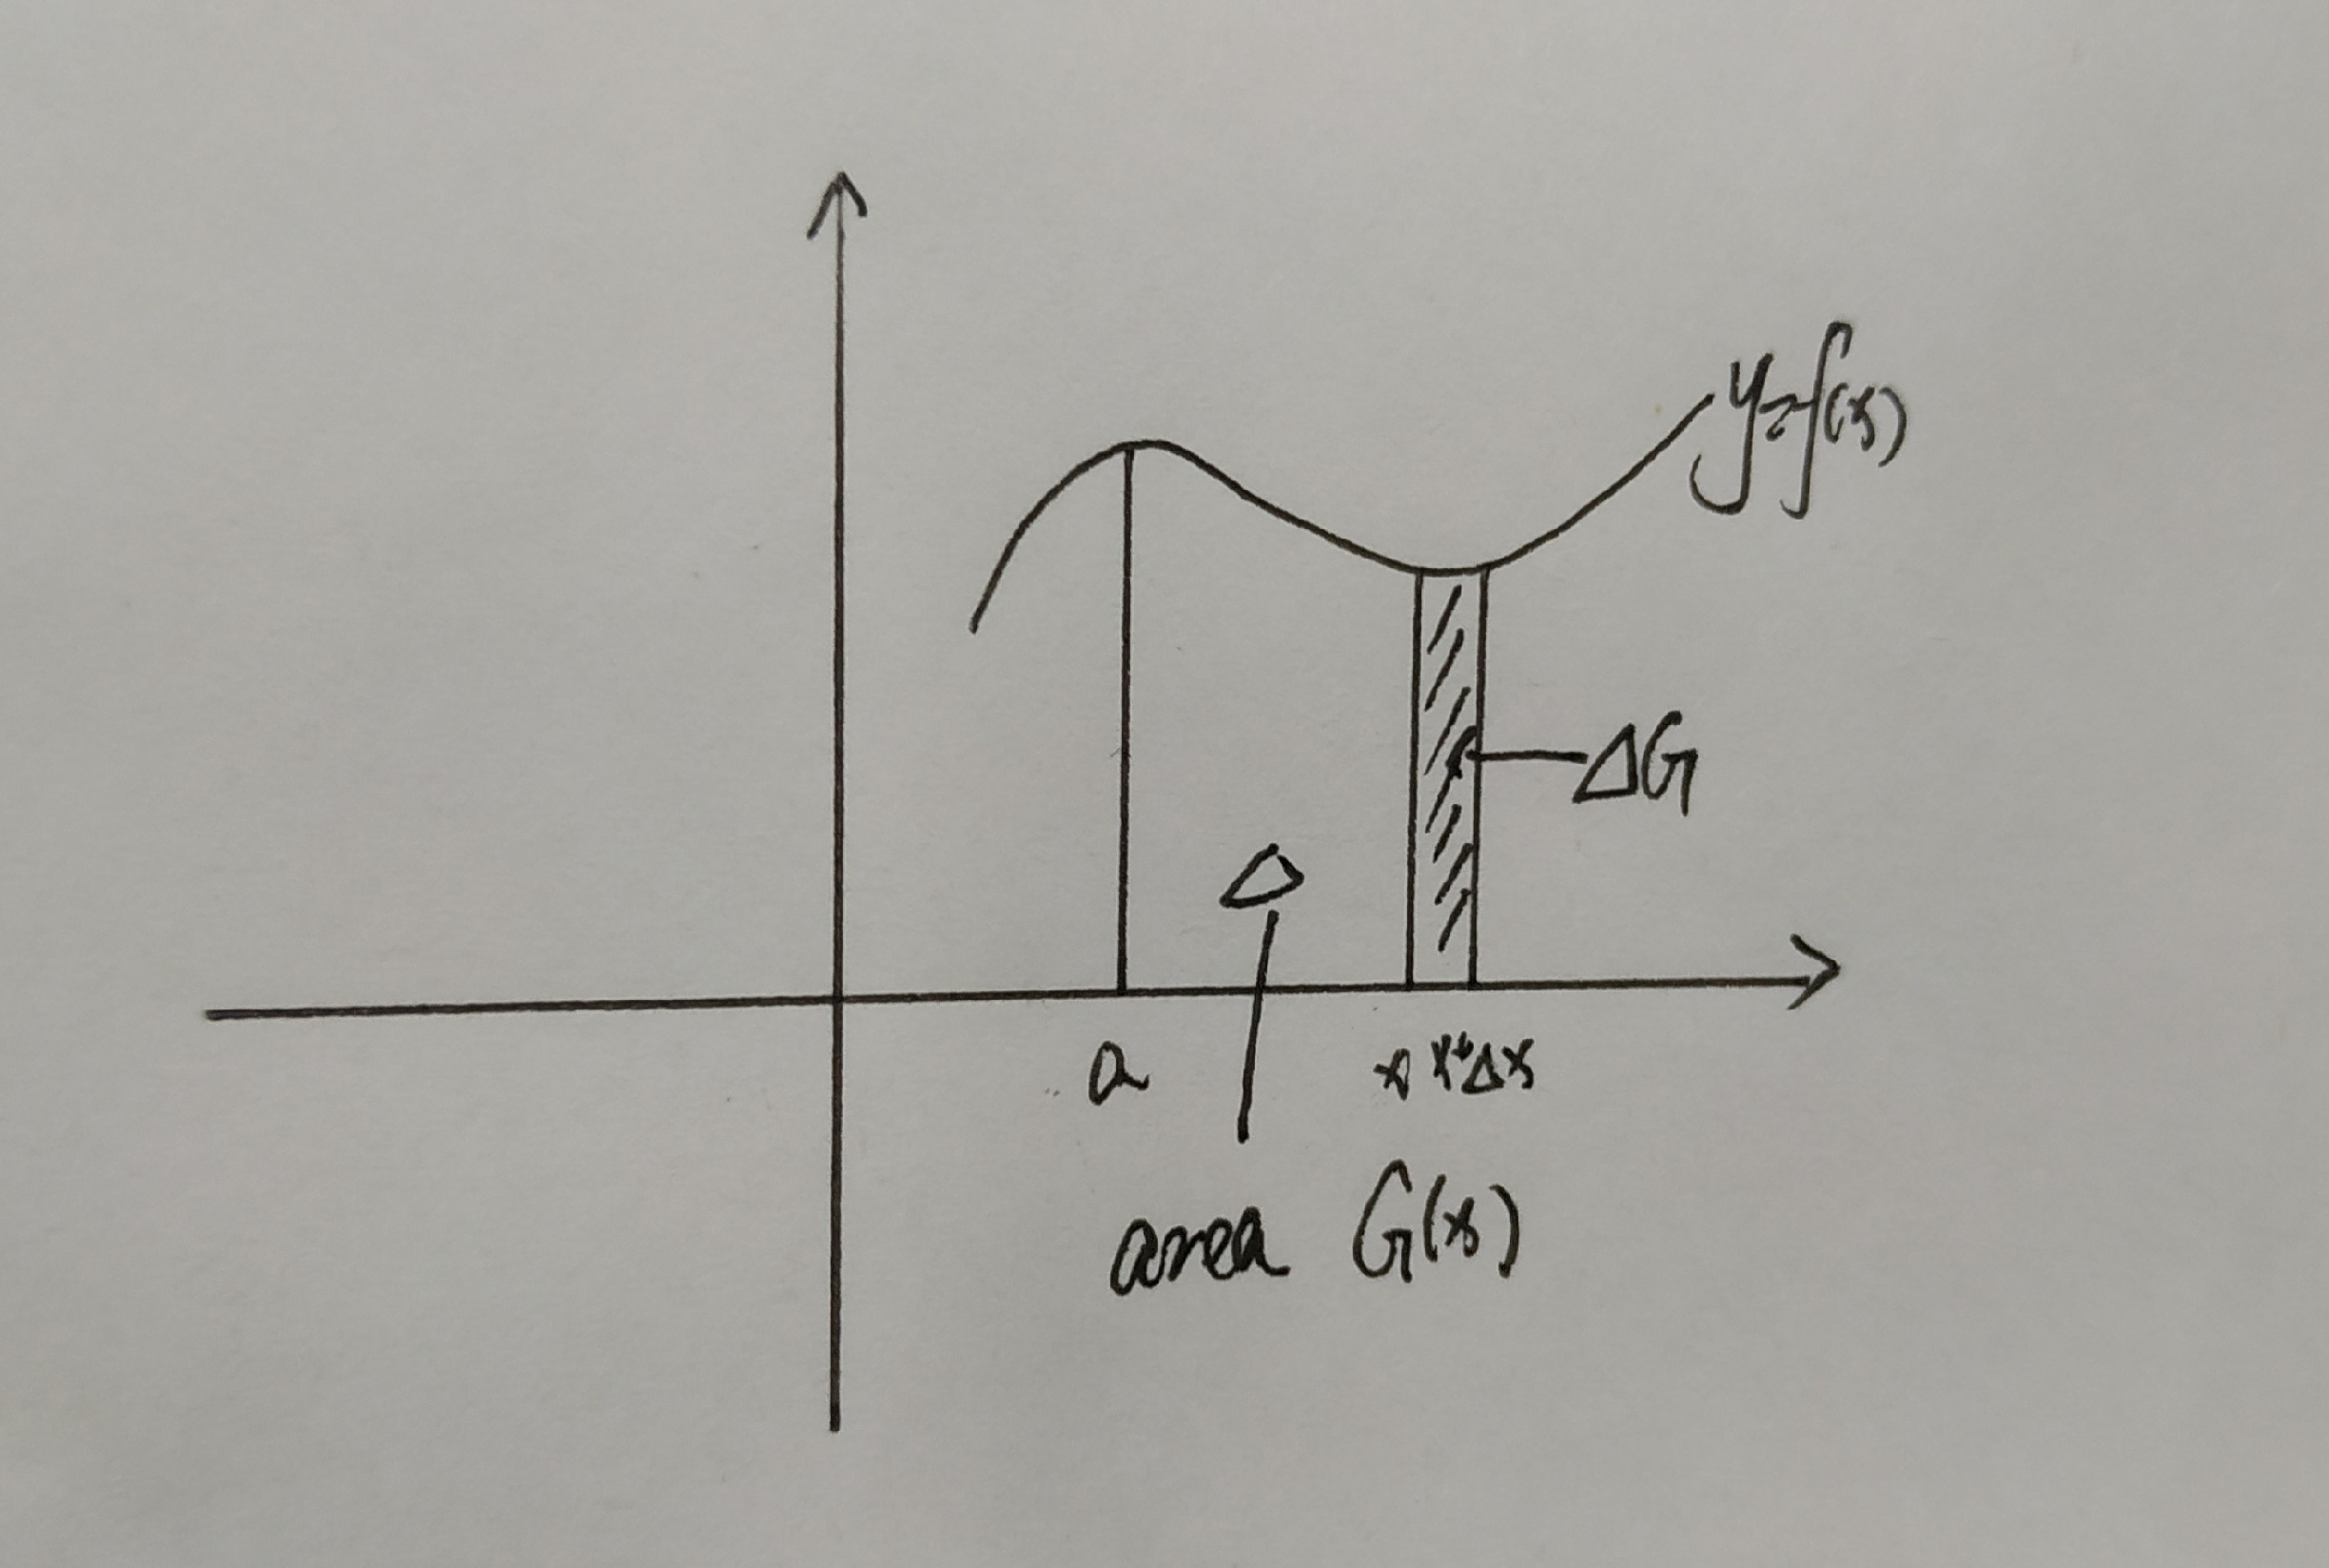 y=f(x)
ΔG
a
x x+Δx
area G(x)